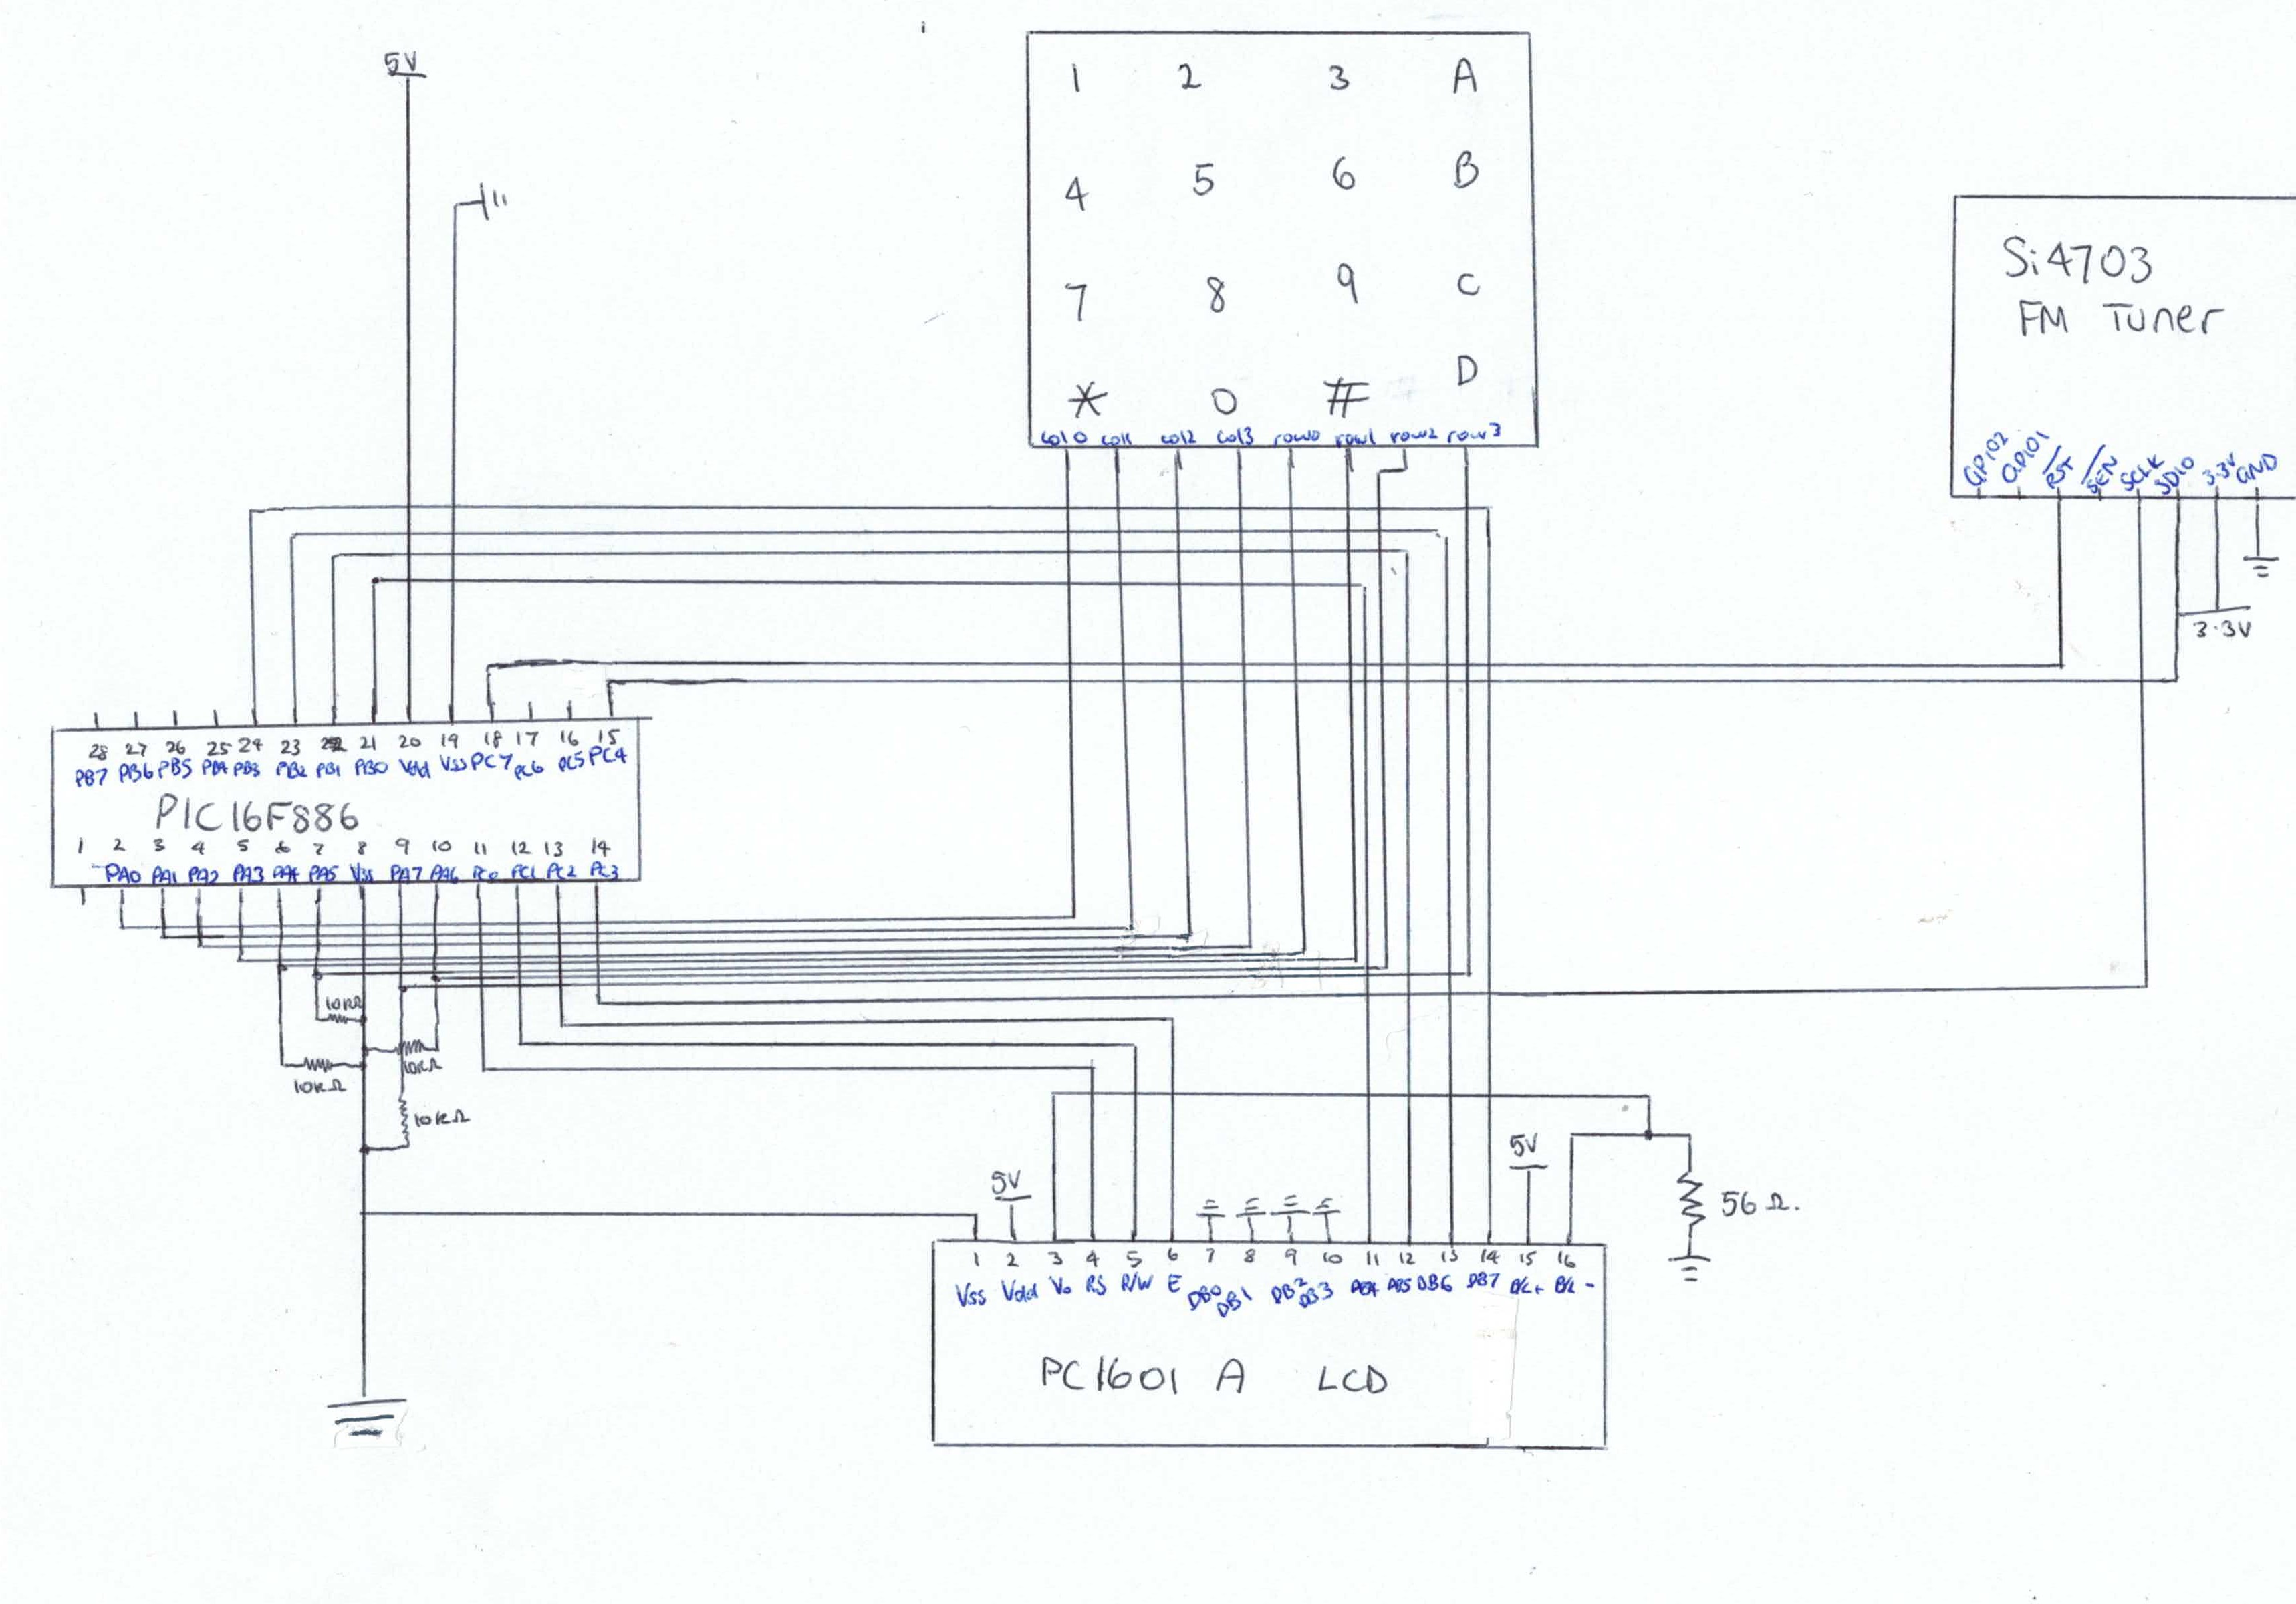 5V
1 2 3 A
4 5 6 B
7 8 9 C
* 0 # D
col0 col1 col2 col3 row0 row1 row2 row3
Si4703
FM Tuner
GPIO2 GPIO1 RST SEN SCLK SDIO 3.3V GND
3.3V
28 27 26 25 24 23 22 21 20 19 18 17 16 15
PB7 PB6 PB5 PB4 PB3 PB2 PB1 PB0 Vdd Vss PC7 PC6 PC5 PC4
PIC16F886
1 2 3 4 5 6 7 8 9 10 11 12 13 14
PA0 PA1 PA2 PA3 PA4 PA5 Vss PA7 PA6 PC0 PC1 PC2 PC3
10kΩ
10kΩ
10kΩ
10kΩ
5V
5V
56Ω.
1 2 3 4 5 6 7 8 9 10 11 12 13 14 15 16
Vss Vdd Vo RS R/W E DB0 DB1 DB2 DB3 DB4 DB5 DB6 DB7 B/L+ B/L-
PC1601 A LCD